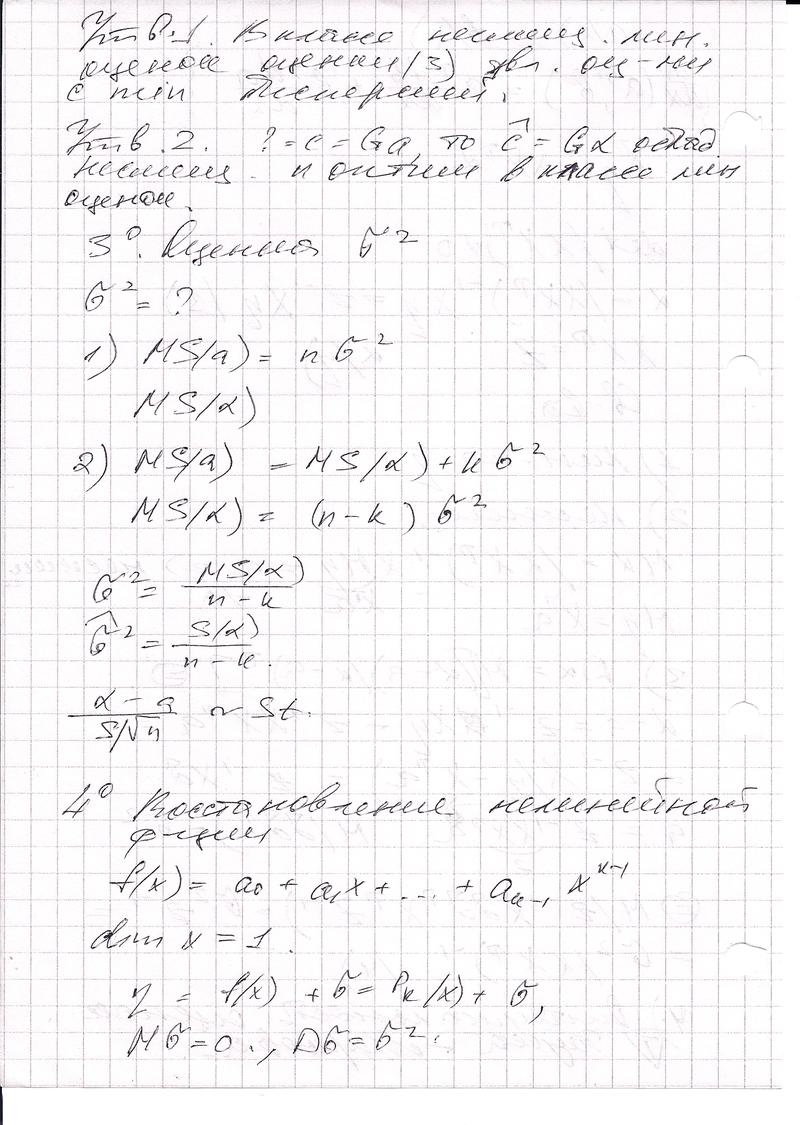 Утв.1. В классе несмещ. лин.
оценок оценки (3) явл. оц-ми
с min дисперсией.
Утв.2. ? = c = Ga, то ĉ = Gα облад
несмещ. и оптим в классе лин
оценок.
3°. Оценка σ²
σ² = ?
1) MS(a) = nσ²
MS(α)
2) MS(a) = MS(α) + kσ²
MS(α) = (n-k) σ²
σ² = MS(α) / n-k
σ̂² = S(α) / n-k.
α - a / S/√n ~ St.
4° Восстановление нелинейной
ф-ции
f(x) = a₀ + a₁x + ... + aₖ₋₁ xᵏ⁻¹
dim x = 1.
η = f(x) + σ = Pₖ(x) + σ,
Mσ = 0., Dσ = σ².